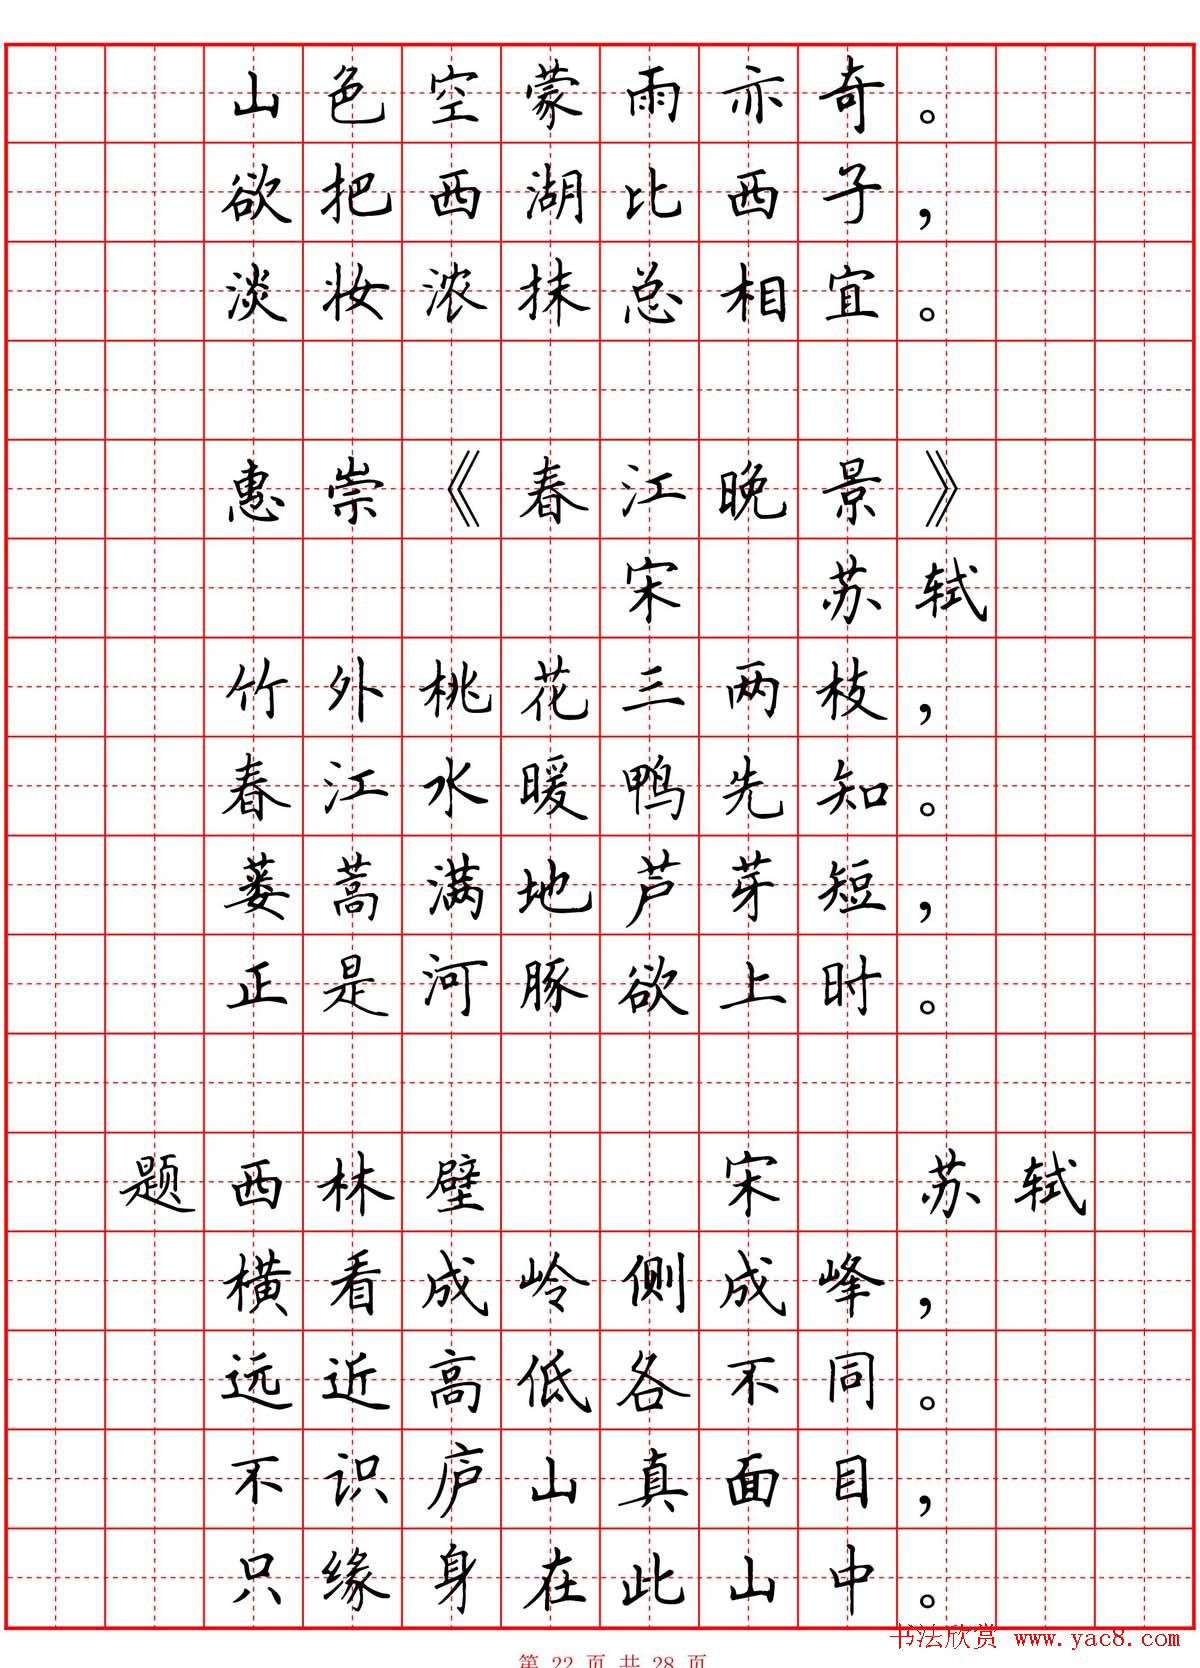 山色空蒙雨亦奇。
欲把西湖比西子，
淡妆浓抹总相宜。
惠崇《春江晚景》
宋 苏轼
竹外桃花三两枝，
春江水暖鸭先知。
蒌蒿满地芦芽短，
正是河豚欲上时。
题西林壁 宋 苏轼
横看成岭侧成峰，
远近高低各不同。
不识庐山真面目，
只缘身在此山中。
书法欣赏 www.yac8.com
第 22 页 共 28 页